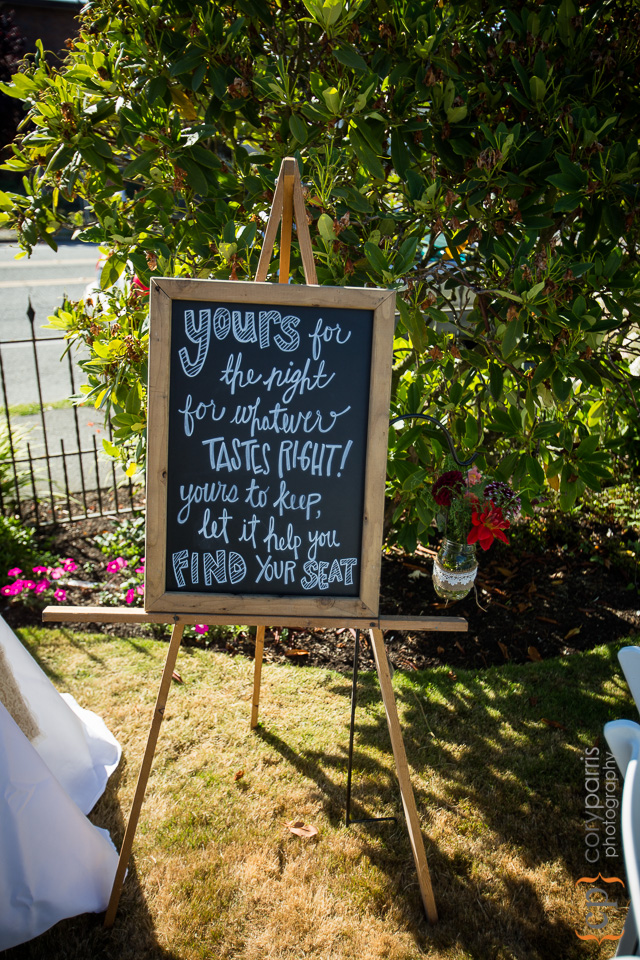 yours for
the night
for whatever
TASTES RIGHT!
yours to keep,
let it help you
FIND YOUR SEAT
coryparris
photography
{cp}